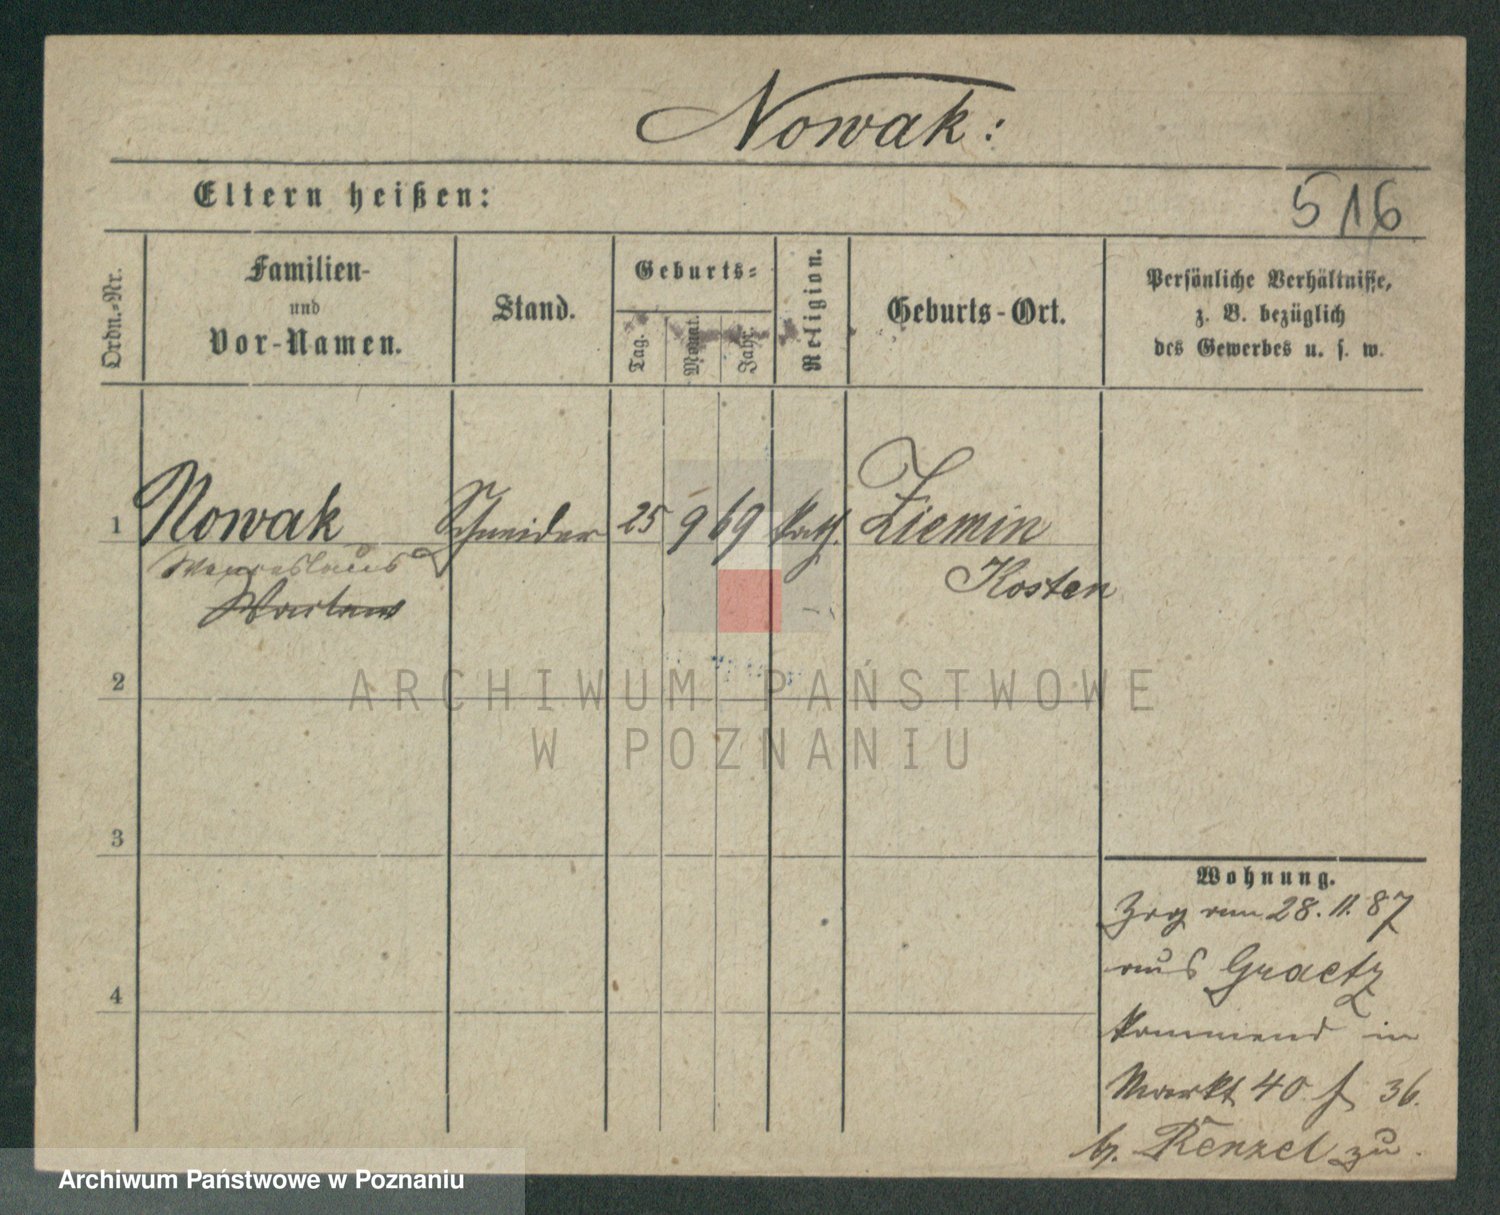 Nowak:
Eltern heißen:
516
Ordn.-Nr.
Familien-
und
Vor-Namen.
Stand.
Geburts-
Tag.
Monat.
Jahr.
Religion.
Geburts-Ort.
Persönliche Verhältnisse,
z. B. bezüglich
des Gewerbes u. s. w.
1 Nowak Schneider 25 9 69 kath. Ziemin
Wenzeslaus Kosten
2
ARCHIWUM PAŃSTWOWE
W POZNANIU
3
4
Wohnung.
Zog am 28. 11. 87
aus Graetz
kommend in
Markt 40 36.
b. Renzel zu.
Archiwum Państwowe w Poznaniu